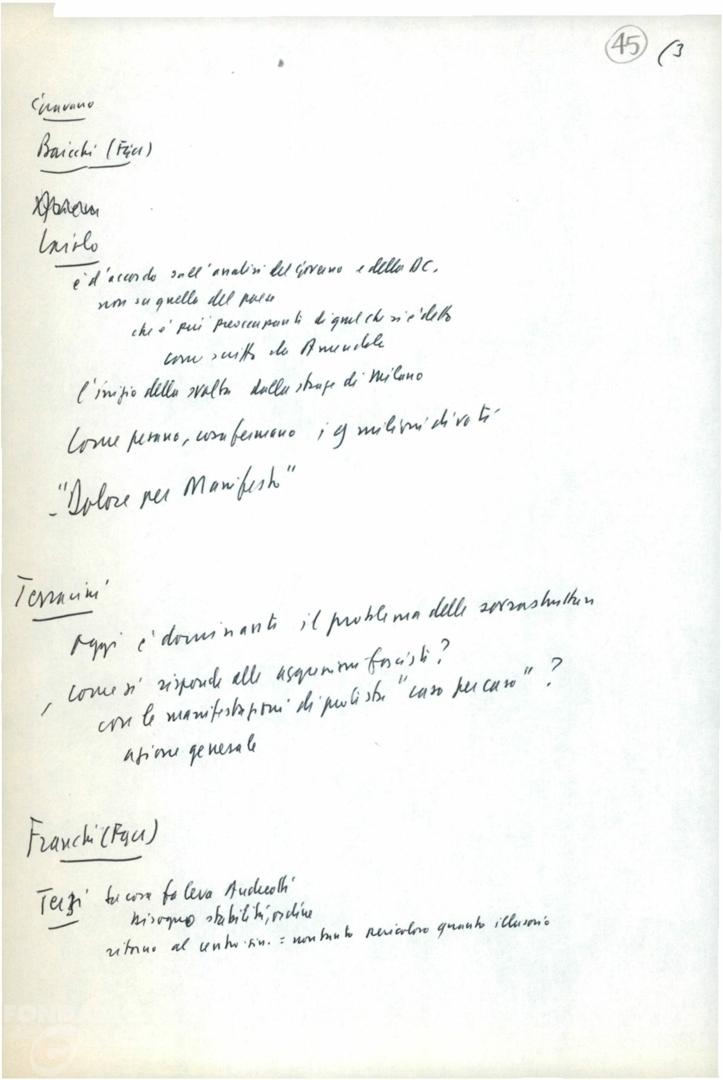 45 (3
Baicchi (Fgci)
Lajolo
è d'accordo sull'analisi del governo e della DC,
non su quella del paese
che è più preoccupante di quel che si è detto
come scritto da Amendola
l'inizio della svolta dalla strage di Milano
Come pesano, cosa fermano i 9 milioni di voti
- "Dolore per Manifesto"
Terracini
oggi è dominante il problema delle sovrastrutture
, come si risponde alle fascisti?
con le manifestazioni di protesta "caso per caso" ?
azione generale
Franchi (Fgci)
Terzi su cosa fa leva Andreotti
bisogno stabilità, ordine
ritorno al centro-sin. = non tanto pericoloso quanto illusorio
FONDA